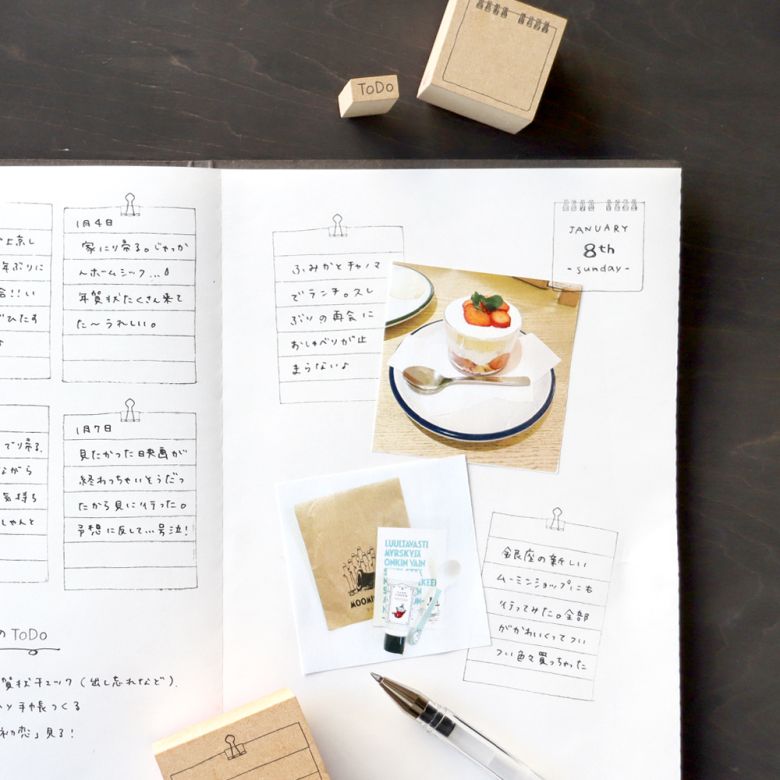 ToDo
上京し
年ぶりに
ひたす
で帰る。
ながら
気持ち
しゃんと
1月4日
家に帰る。じゃっか
んホームシック...
年賀状たくさん来て
た〜うれしい。
1月7日
見たかった映画が
終わっちゃいそうだっ
たから見に行った。
予想に反して...号泣!
の ToDo
賀状チェック(出し忘れなど).
手帳つくる
初恋」見る!
ふみかとチャノマ
でランチ。久し
ぶりの再会に
おしゃべりが止
まらないよ
JANUARY
8th
-sunday-
LUULTAVASTI
MYRSKYJÄ
ONKIN VAIN
MOOMI
銀座の新しい
ムーミンショップにも
行ってみた。全部
がかわいくってつい
つい色々買っちゃった